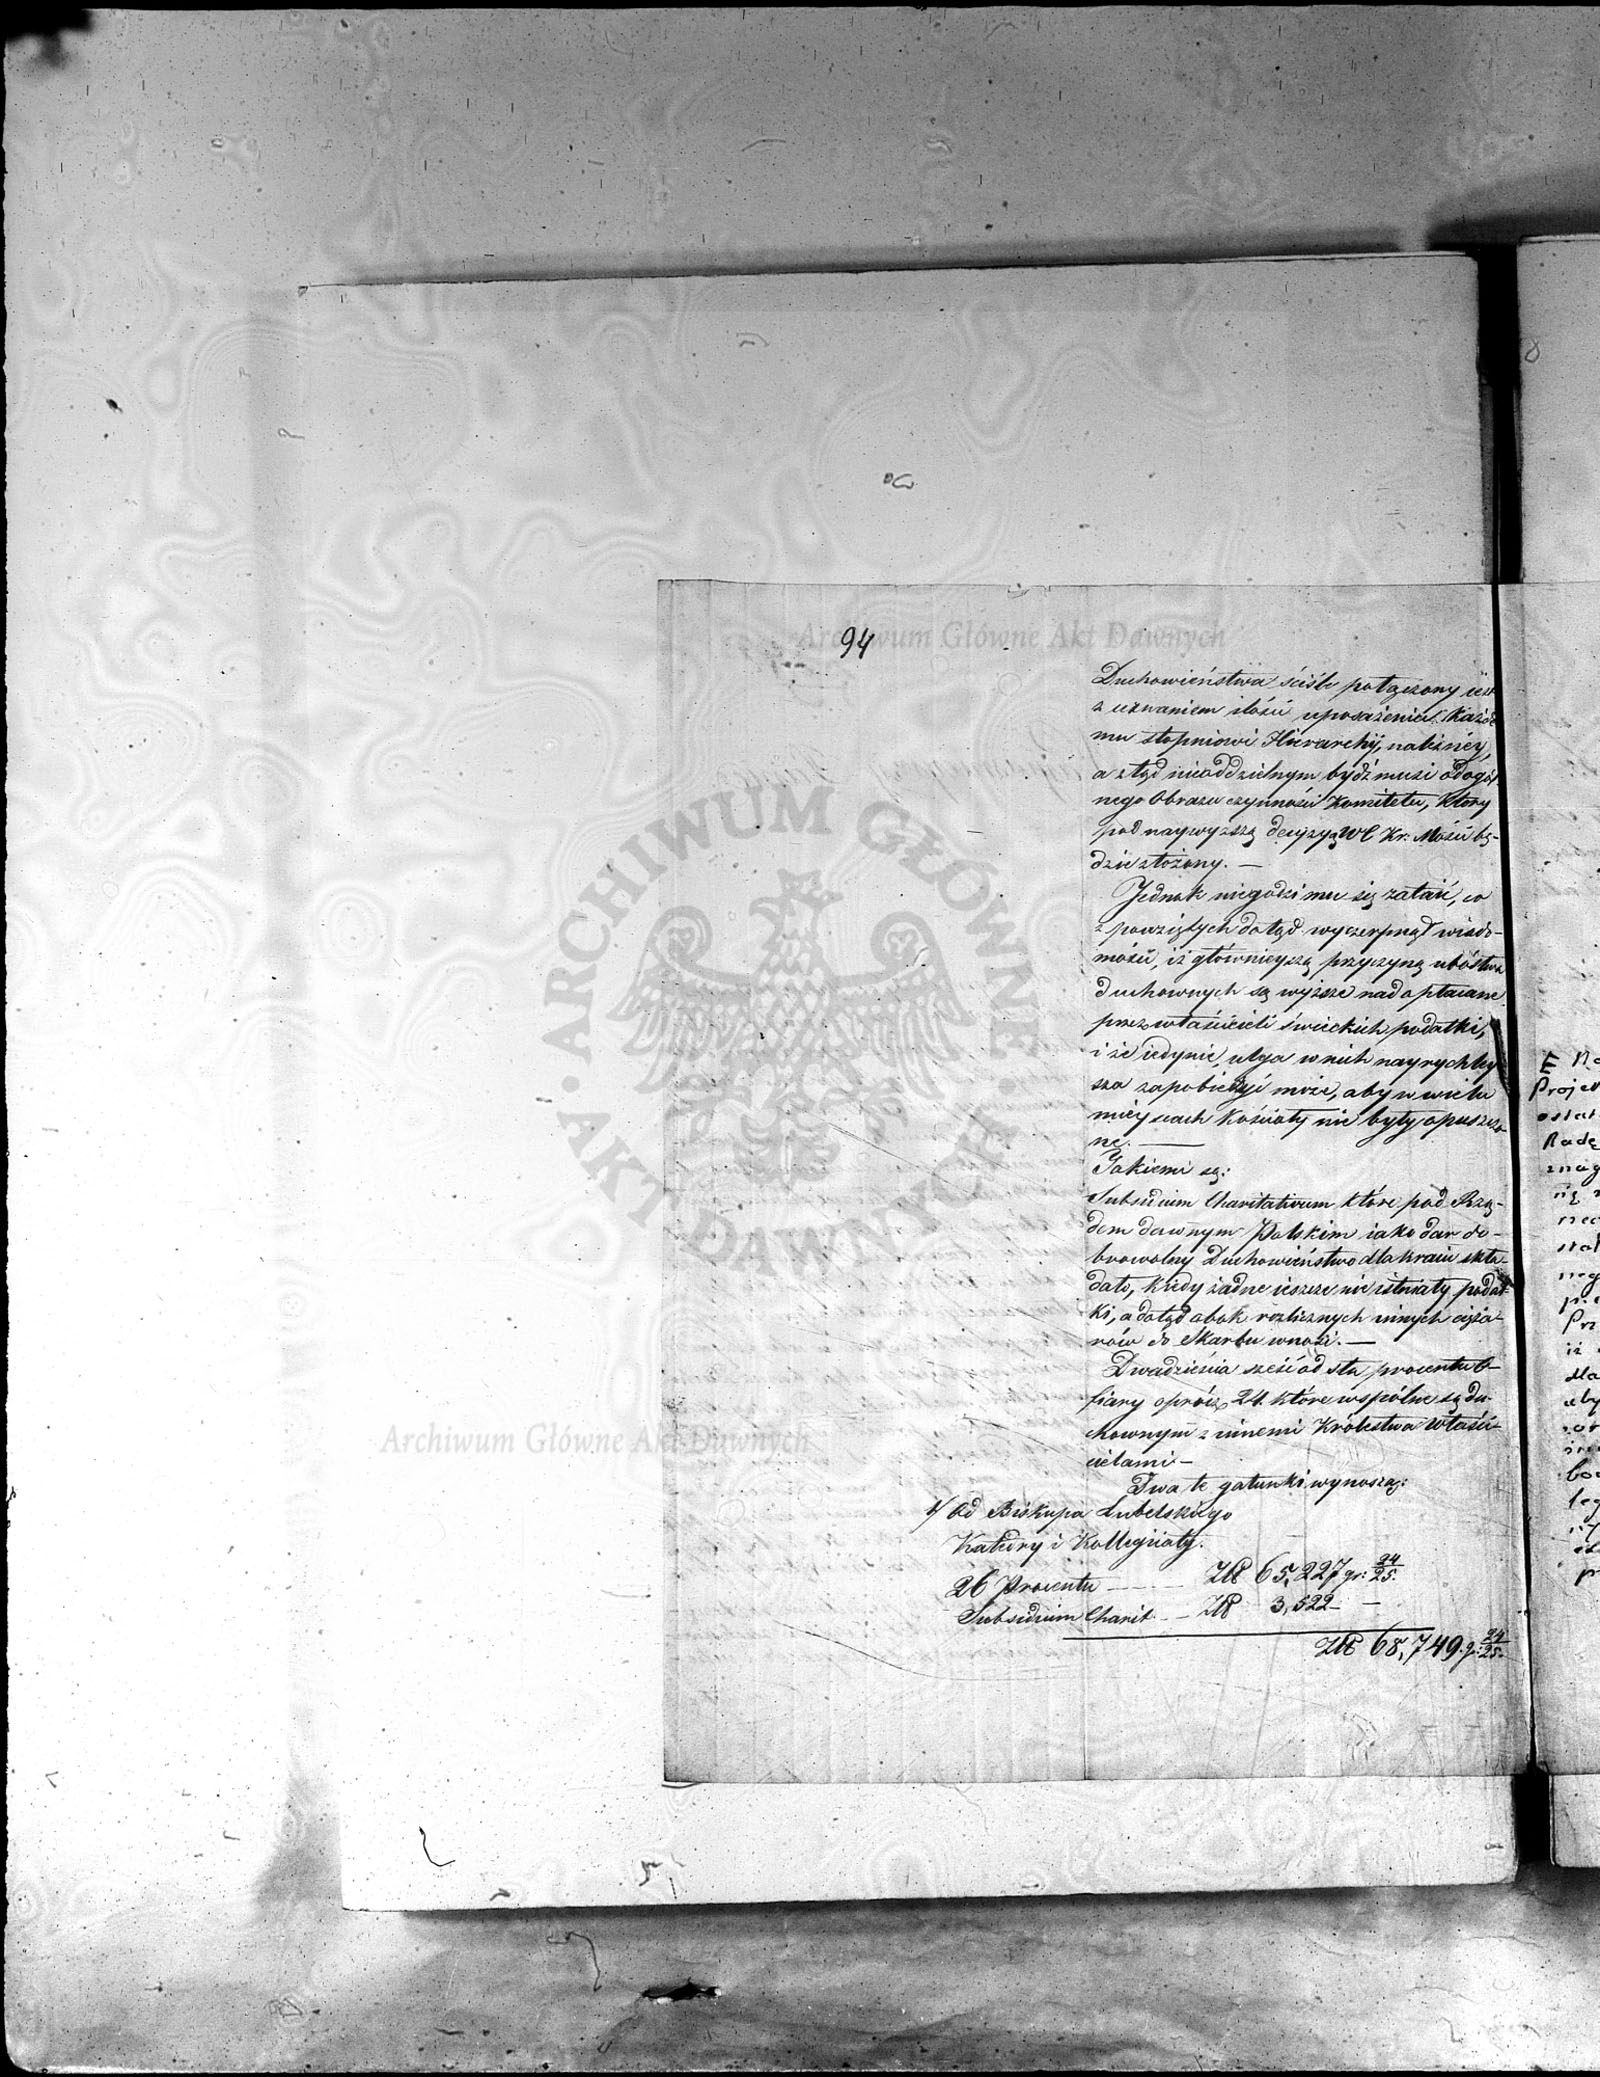 94
Duchowieństwa ściśle połączony iest
z uznaniem ilości uposażenia każde
mu stopniowi Hierarchij, należnéy,
a ztąd nieoddzielnym bydź musi od ogól
nego Obrazu czynności Komitetu, który
pod naywyższą decyzyą WC Kr: Mości bę-
dzie złożony. —
Jednak niegodzi mu się zataić, co
z powziętych dotąd wyczerpnął wiado-
mości, iż główniejszą przyczyną ubóstwa
duchownych są wyższe nad opłacane
przez właścicieli świeckich podatki,
i że iedynie ulga w nich nayrychley
sza zapobiedz może, aby w wielu
mieyscach Kościoły nie były opuszczo
ne. —
Jakiemi są:
Subsidium Charitativum które pod Rzą-
dem dawnym Polskim iako dar do-
browolny Duchowieństwo dla kraiu skła-
dało, kiedy żadne ieszcze nie istniały podat
ki, a dotąd obok rozlicznych innych cięża-
rów do Skarbu wnosi. —
Dwadzieścia sześć od sta procentu O-
fiary oprócz 24. które wspólne są du-
chownym z innemi Królestwa Właści-
cielami —
Dwa te gatunki wynoszą:
1/ Od Biskupa Lubelskiego
Katedry i Kollegiaty.
26 Procentu — Złp 65,227 gr: 24/25.
Subsidium Charit. — Złp 3,522 — —
Złp 68,749. g: 24/25.
Archiwum Główne Akt Dawnych
ARCHIWUM GŁÓWNE AKT DAWNYCH
Archiwum Główne Akt Dawnych